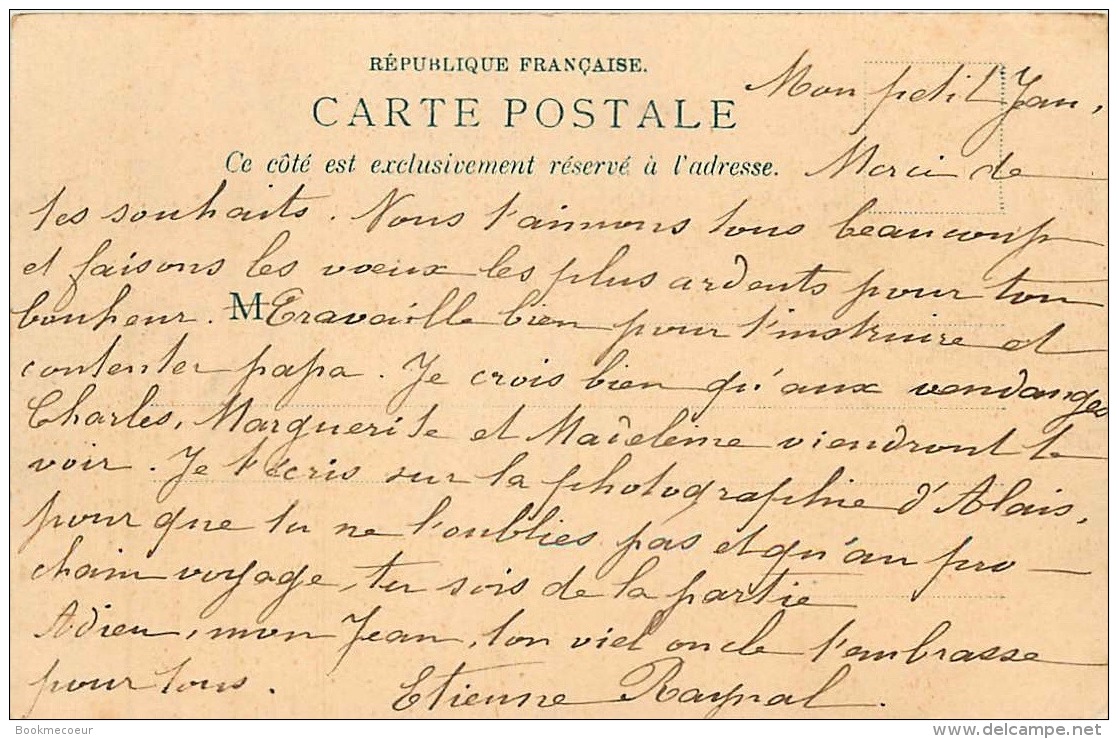 RÉPUBLIQUE FRANÇAISE.
CARTE POSTALE
Ce côté est exclusivement réservé à l'adresse.
Mon petit Jean,
Merci de
tes souhaits. Nous t'aimons tous beaucoup
et faisons les vœux les plus ardents pour ton
bonheur. M Travaille bien pour t'instruire et
contenter papa. Je crois bien qu'aux vendanges
Charles, Marguerite et Madeleine viendront te
voir. Je t'écris sur la photographie d'Alais,
pour que tu ne l'oublies pas et qu'au pro-
chain voyage, tu sois de la partie
Adieu, mon Jean, ton viel oncle t'embrasse
pour tous. Etienne Raynal.
Bookmecoeur
www.delcampe.net